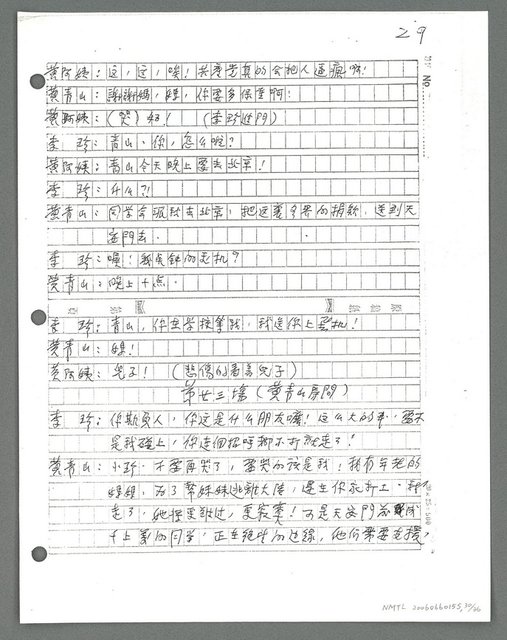 29
No.
黄阿姨：这，这，唉！共产党真的会把人逼疯啊！
黄青山：謝謝媽，媽，你要多保重啊！
黄阿姨：（哭）好！（李玲進門）
李　玲：青山，你，怎么啦？
黄阿姨：青山今天晚上要去北京！
李　玲：什么?!
黄青山：同学会派我去北京，把这裏各界的捐款，送到天
安門去．
李　玲：噢！几点钟的飞机？
黄青山：晚上十点．
李　玲：青山，你在学校等我，我送你上飞机！
黄青山：媽！
黄阿姨：兒子！（悲傷的看着兒子）
第廿三場（黄青山房間）
李　玲：你欺負人，你这是什么朋友嘛！这么大的事，要不
是我碰上，你連個招呼都不打就走了！
黄青山：小玲，不要再哭了，要哭的该是我！我有年老的
媽媽，为了幫妹妹逃離大陸，還在你家打工．我
走了，她惺更难过，更寂寞！可是天安門前
十上萬的同学，正在犧牲的边緣，他们需要支援，
NMTL 20060660155, 30/36